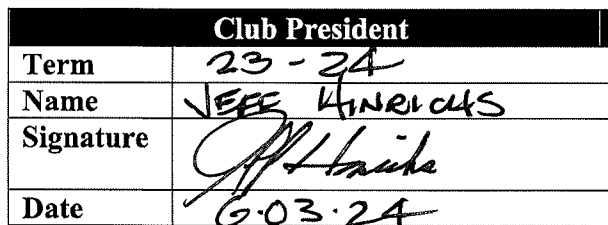 Club President
Term 23-24
Name JEFF HINRICHS
Signature Jeff Hinrichs
Date 6.03.24